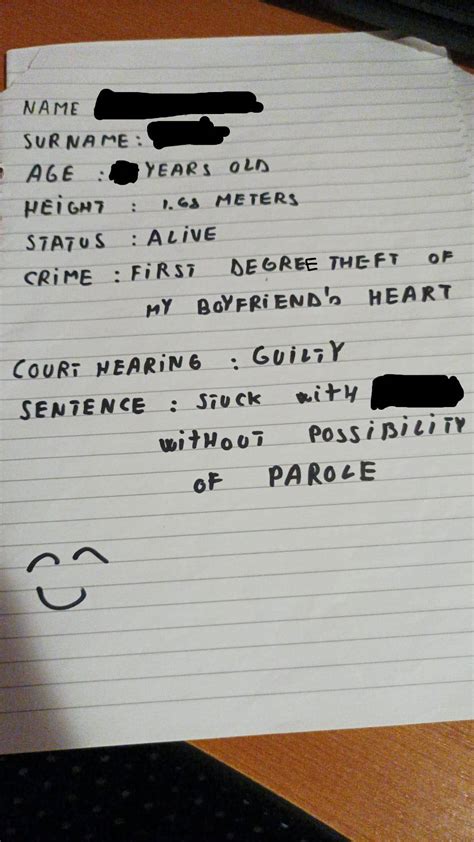 NAME
SURNAME:
AGE : YEARS OLD
HEIGHT : 1.68 METERS
STATUS : ALIVE
CRIME : FIRST DEGREE THEFT OF
MY BOYFRIEND'S HEART
COURT HEARING : GUILTY
SENTENCE : STUCK WITH
WITHOUT POSSIBILITY
OF PAROLE